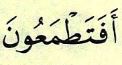 أَفَتَطْمَعُونَ